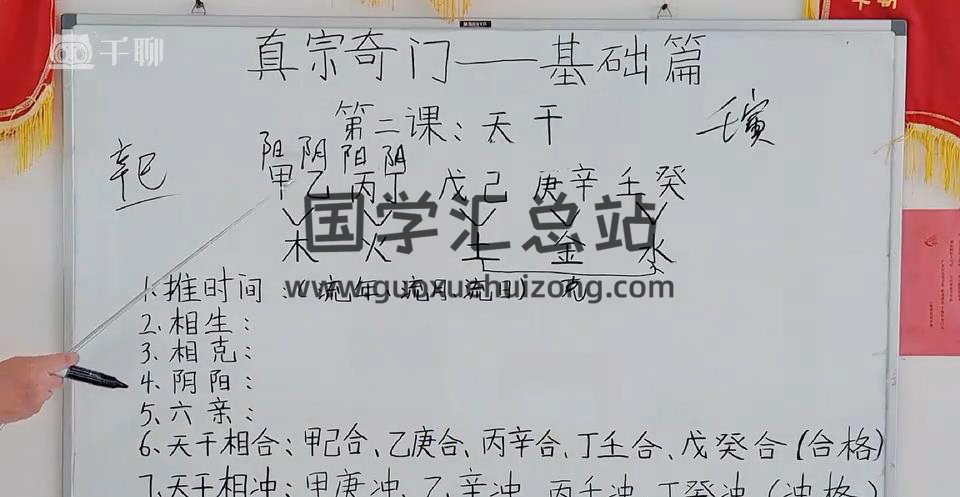 千聊
真宗奇门——基础篇
第二课:天干
壬寅
辛巳
阳阴阳阴
甲乙丙丁戊己庚辛壬癸
木火土金水
国学汇总站
1.推时间:流年 流月 流日) 克
www.guoxuehuizong.com
2.相生:
3.相克:
4.阴阳:
5.六亲:
6.天干相合:甲己合、乙庚合、丙辛合、丁壬合、戊癸合(合格)
7.天干相冲:甲庚冲、乙辛冲、丙壬冲、丁癸冲(冲格)